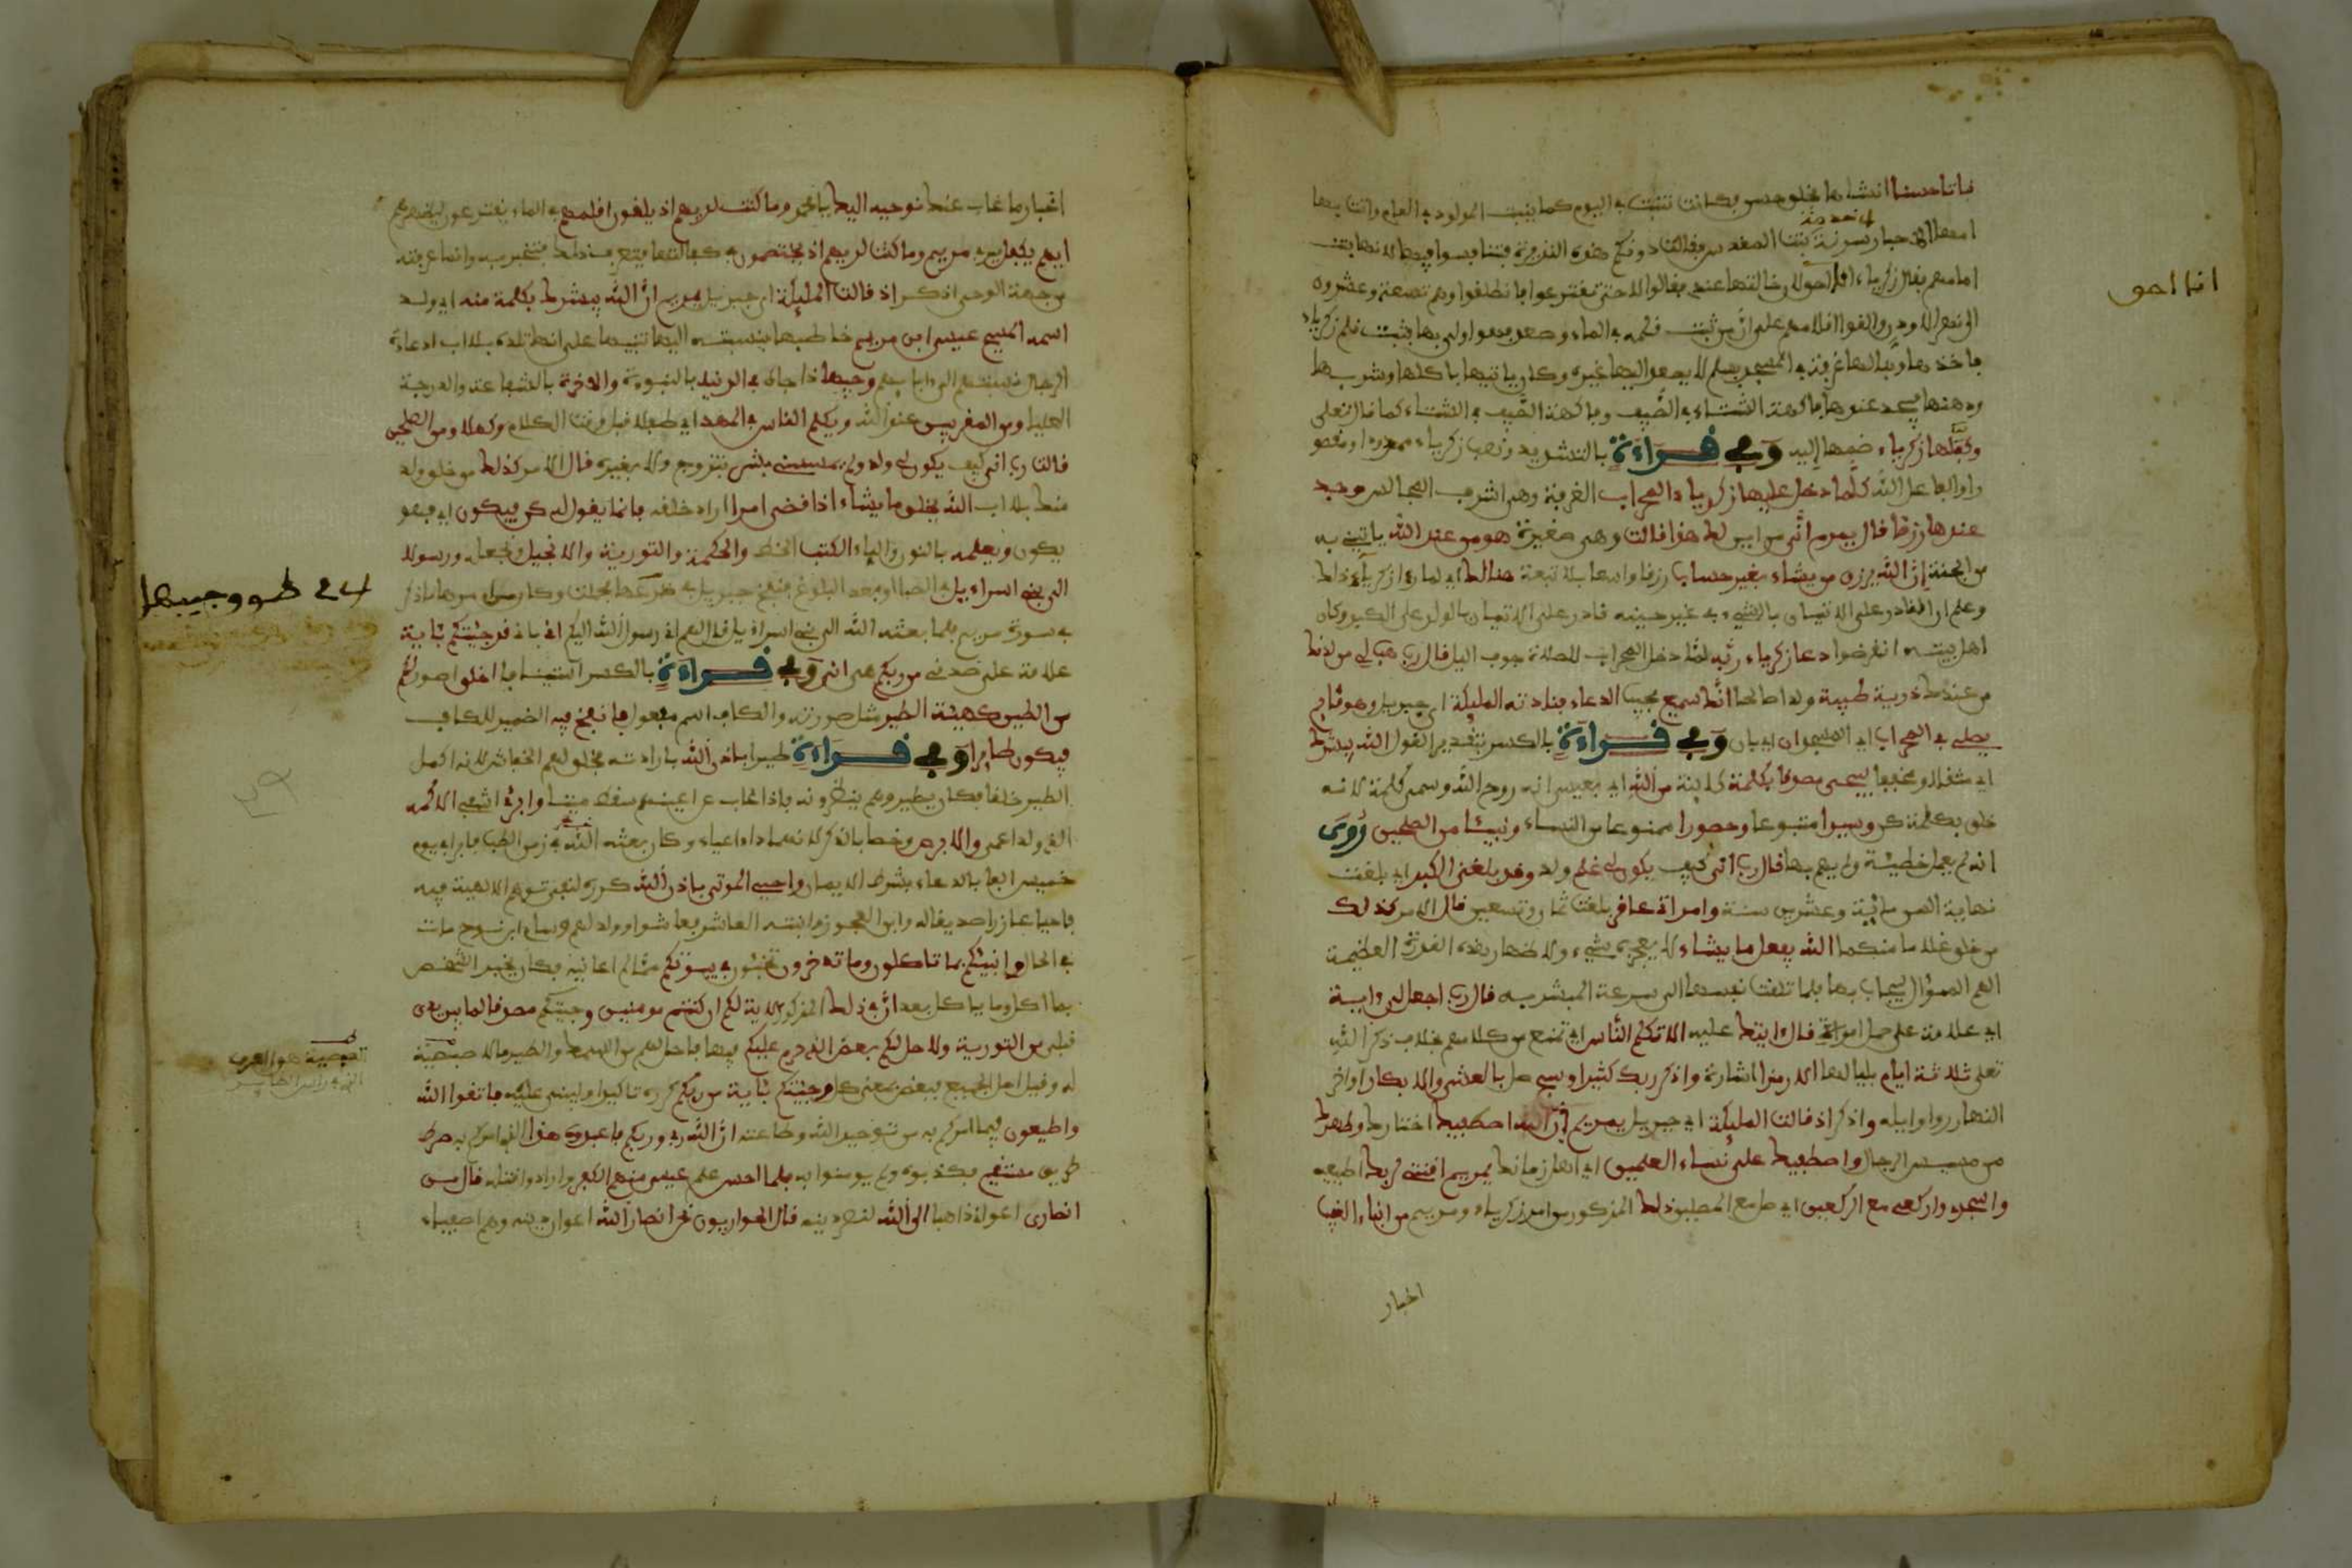 نباتا حسنا انشاها بخلق حسن فكانت تنبت في اليوم كما ينبت المولود في العام واتت بها
امها الاحبار سدنة بيت المقدس فقالت دونكم هذه النذيرة فتنافسوا فيها لانها بنت
امامهم فقال زكرياء انا احق بها لان خالتها عندي فقالوا لا حتى نقترع فانطلقوا وهم تسعة وعشرون
الى نهر الاردن والقوا اقلامهم على ان من ثبت قلمه في الماء وصعد فهو اولى بها فثبت قلم زكرياء
فاخذها وبنا لها غرفة في المسجد بسلم لا يصعد اليها غيره وكان ياتيها باكلها وشربها
ودهنها فيجد عندها فاكهة الشتاء في الصيف وفاكهة الصيف في الشتاء كما قال تعلى
وكفلها زكرياء ضمها إليه وَفِي قِرَاءَةٍ بالتشديد ونصب زكرياء ممدودا ومقصو
را والفاعل الله كلما دخل عليها زكرياء المحراب الغرفة وهي اشرف المجالس وجد
عندها رزقا قال يمريم أنى من اين لك هذا قالت وهي صغيرة هو من عند الله ياتيني به
من الجنة إن الله يرزق من يشاء بغير حساب رزقا واسعا بلا تبعة هنالك اي لما رءا زكرياء ذلك
وعلم ان القادر على الاتيان بالشيء في غير حينه قادر على الاتيان بالولد على الكبر وكان
اهل بيته انقرضوا دعا زكرياء ربه لما دخل المحراب للصلاة جوف اليل قال رب هب لي من لدنك
من عندك ذرية طيبة ولدا صالحا انك سميع مجيب الدعاء فنادته المليكة اي جبريل وهو قايم
يصلي في المحراب اي المسجد ان اي بان وَفِي قِرَاءَةٍ بالكسر بتقدير القول الله يبشرك
اي مثقلا ومخففا بيحيى مصدقا بكلمة كاينة من الله اي بعيسى انه روح الله وسمي كلمة لانه
خلق بكلمة كن وسيدا متبوعا وحصورا ممنوعا من النساء ونبيئا من الصلحين رُوِيَ
انه لم يعمل خطيئة ولم يهم بها قال رب انى كيف يكون لي غلم ولد وقد بلغني الكبر اي بلغت
نهاية السن ماية وعشرين سنة وامراتي عاقر بلغت ثمان وتسعين قال الامر كذلك
من خلق غلاما منكما الله يفعل ما يشاء لا يعجزه شيء ولاظهار هذه القدرة العظيمة
الهم السؤال ليجاب بها ولما تاقت نفسه الى سرعة المبشر به قال رب اجعل لي ءاية
اي علامة على حمل امراتي قال ءايتك عليه الا تكلم الناس اي تمنع من كلامهم بخلاف ذكر الله
تعلى ثلاثة ايام بلياليها الا رمزا اشارة واذكر ربك كثيرا وسبح صل بالعشي والابكار اواخر
النهار واوايله واذكر اذ قالت المليكة اي جبريل يمريم إن الله اصطفيك اختارك وطهرك
من مسيس الرجال واصطفيك على نساء العلمين اي اهل زمانك يمريم اقنتي لربك اطيعيه
واسجدي واركعي مع الركعين اي صلي مع المصلين ذلك المذكور من امر زكرياء ومريم من انباء الغيب
اخبار
انا احق
اخبار ما غاب عنك نوحيه اليك يا محمد وما كنت لديهم اذ يلقون اقلمهم في الماء يقترعون ليظهر لهم
ايهم يكفل يربي مريم وما كنت لديهم اذ يختصمون في كفالتها فتعرف ذلك فتخبر به وانما عرفته
من جهة الوحي اذكر اذ قالت المليكة اي جبريل يمريم ان الله يبشرك بكلمة منه اي ولد
اسمه المسيح عيسى ابن مريم خاطبها بنسبته اليها تنبيها على انها تلده بلا اب اذ عادة
الرجال نسبتهم الى ءابايهم وجيها ذا جاه في الدنيا بالنبوءة والاخرة بالشفاعة والدرجة
العليا ومن المقربين عند الله ويكلم الناس في المهد اي طفلا قبل وقت الكلام وكهلا ومن الصلحين
قالت رب انى كيف يكون لي ولد ولم يمسسني بشر بتزوج ولا بغيره قال الامر كذلك من خلق ولد
منك بلا اب الله يخلق ما يشاء اذا قضى امرا اراد خلقه فانما يقول له كن فيكون اي فهو
يكون ويعلمه بالنون والياء الكتب الخط والحكمة والتورية والانجيل ونجعله ورسولا
الى بني اسراءيل في الصبا او بعد البلوغ فنفخ جبريل في جيب درعها فحملت وكان من امرها ما ذكر
في سورة مريم فلما بعثه الله الى بني اسراءيل قال لهم اني رسول الله اليكم اني باني قد جئتكم بئاية
علامة على صدقي من ربكم هي اني وَفِي قِرَاءَةٍ بالكسر استينافا اخلق اصور لكم
من الطين كهيئة الطير مثل صورته والكاف اسم مفعول فانفخ فيه الضمير للكاف
فيكون طايرا وَفِي قِرَاءَةٍ طيرا باذن الله بارادته فخلق لهم الخفاش لانه اكمل
الطير خلقا فكان يطير وهم ينظرونه فاذا غاب عن اعينهم سقط ميتا وابرئ اشفي الاكمه
الذي ولد اعمى والابرص وخصا بالذكر لانهما داءا اعياء وكان بعثه الله في زمن الطب فابرا في يوم
خمسين الفا بالدعاء بشرط الايمان واحيي الموتى باذن الله كرره لنفي توهم الالهية فيه
فاحيا عازر صديقا له وابن العجوز وابنة العاشر فعاشوا وولد لهم وسام ابن نوح مات
في الحال وانبئكم بما تاكلون وما تدخرون تخبئون في بيوتكم مما لم اعاينه فكان يخبر الشخص
بما اكل وما ياكل بعد ان في ذلك المذكور لاية لكم ان كنتم مومنين وجئتكم مصدقا لما بين يدي
قبلي من التورية ولاحل لكم بعض الذي حرم عليكم فيها فاحل لهم من السمك والطير ما لا صيصية
له وقيل احل الجميع فبعض بمعنى كل وجئتكم بئاية من ربكم كرره تاكيدا وليبني عليه فاتقوا الله
واطيعون فيما امركم به من توحيد الله وطاعته ان الله ربي وربكم فاعبدوه هذا الذي امركم به صرط
طريق مستقيم فكذبوه ولم يومنوا به فلما احس علم عيسى منهم الكفر وارادوا قتله قال من
انصاري اعواني ذاهبا الى الله لنصر دينه قال الحواريون نحن انصار الله اعوان دينه وهم اصفياء
وجيها
الصيصية هو العرف
الذي في راس الطاير